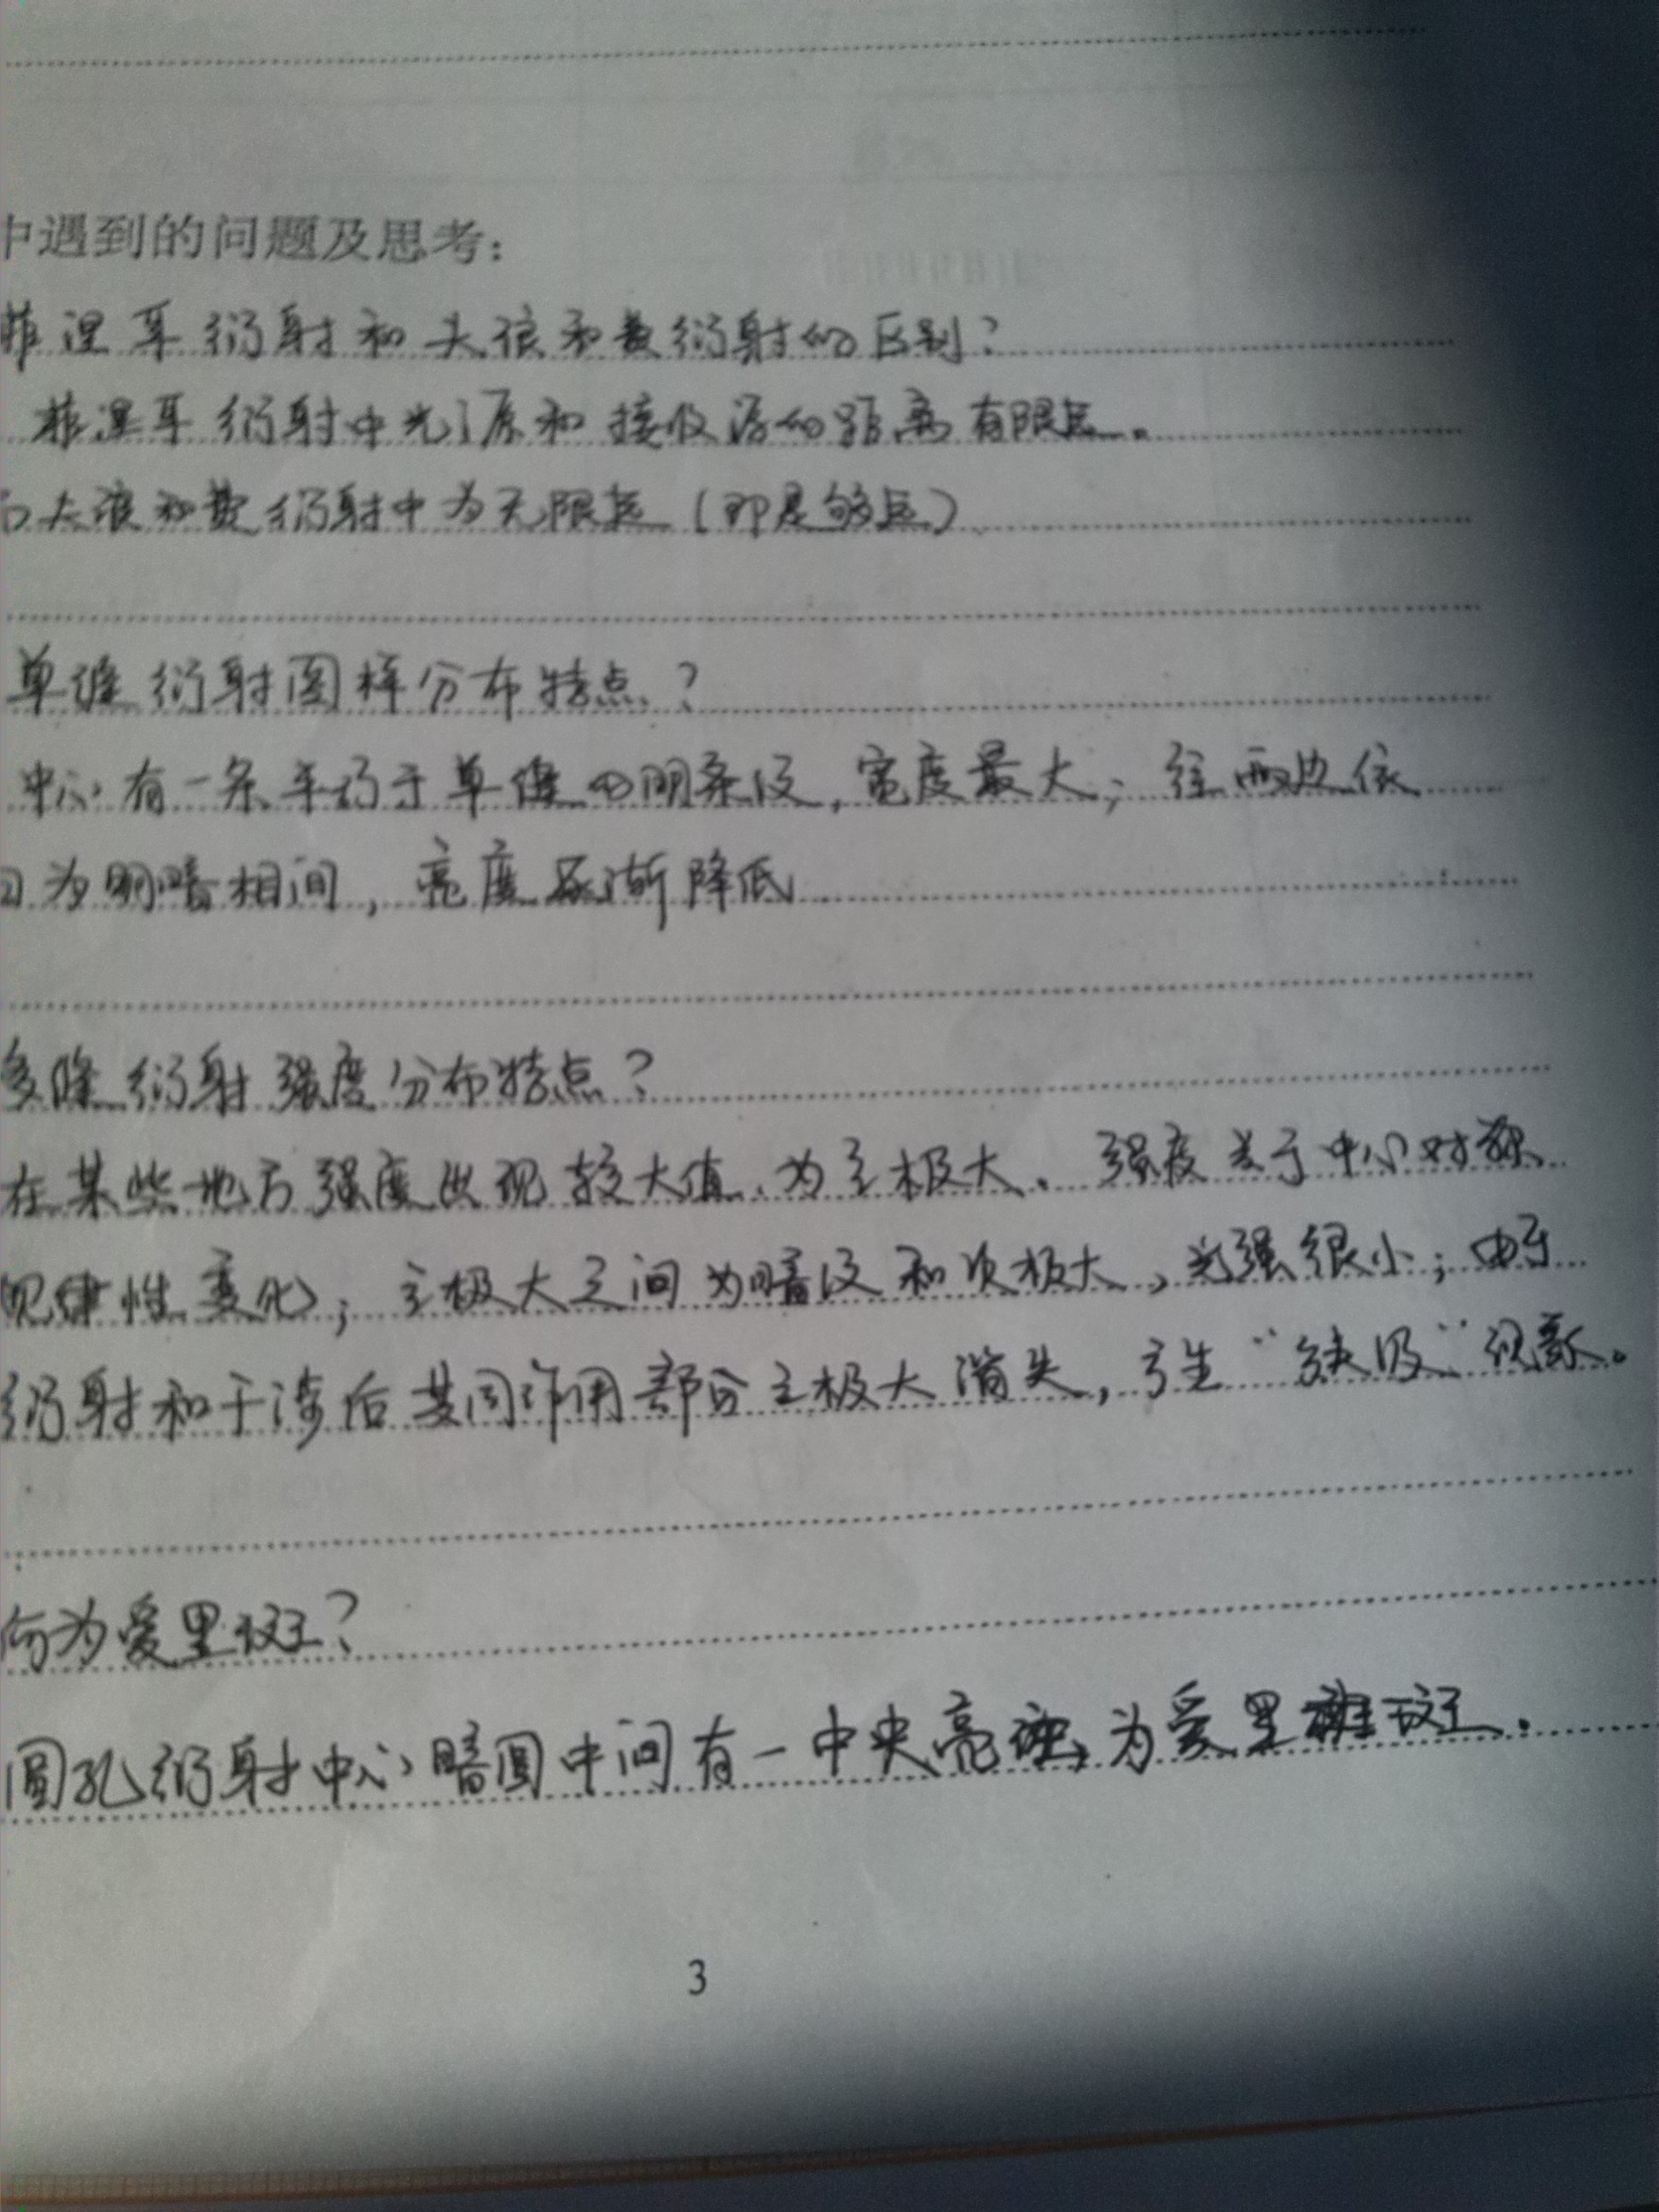 中遇到的问题及思考：
菲涅耳衍射和夫琅和费衍射的区别？
菲涅耳衍射中光源和接收源的距离有限远。
夫琅和费衍射中为无限远（即足够远）
单缝衍射图样分布特点？
中心有一条平行于单缝的明条纹，宽度最大；往两边依
为明暗相间，亮度逐渐降低
多缝衍射强度分布特点？
在某些地方强度出现较大值，为主极大。强度关于中心对称
规律性变化；主极大之间为暗纹和次极大，光强很小；由于
衍射和干涉后共同作用部分主极大消失，产生“缺级”现象。
何为爱里斑？
圆孔衍射中心暗圆中间有一中央亮斑，为爱里斑。
3